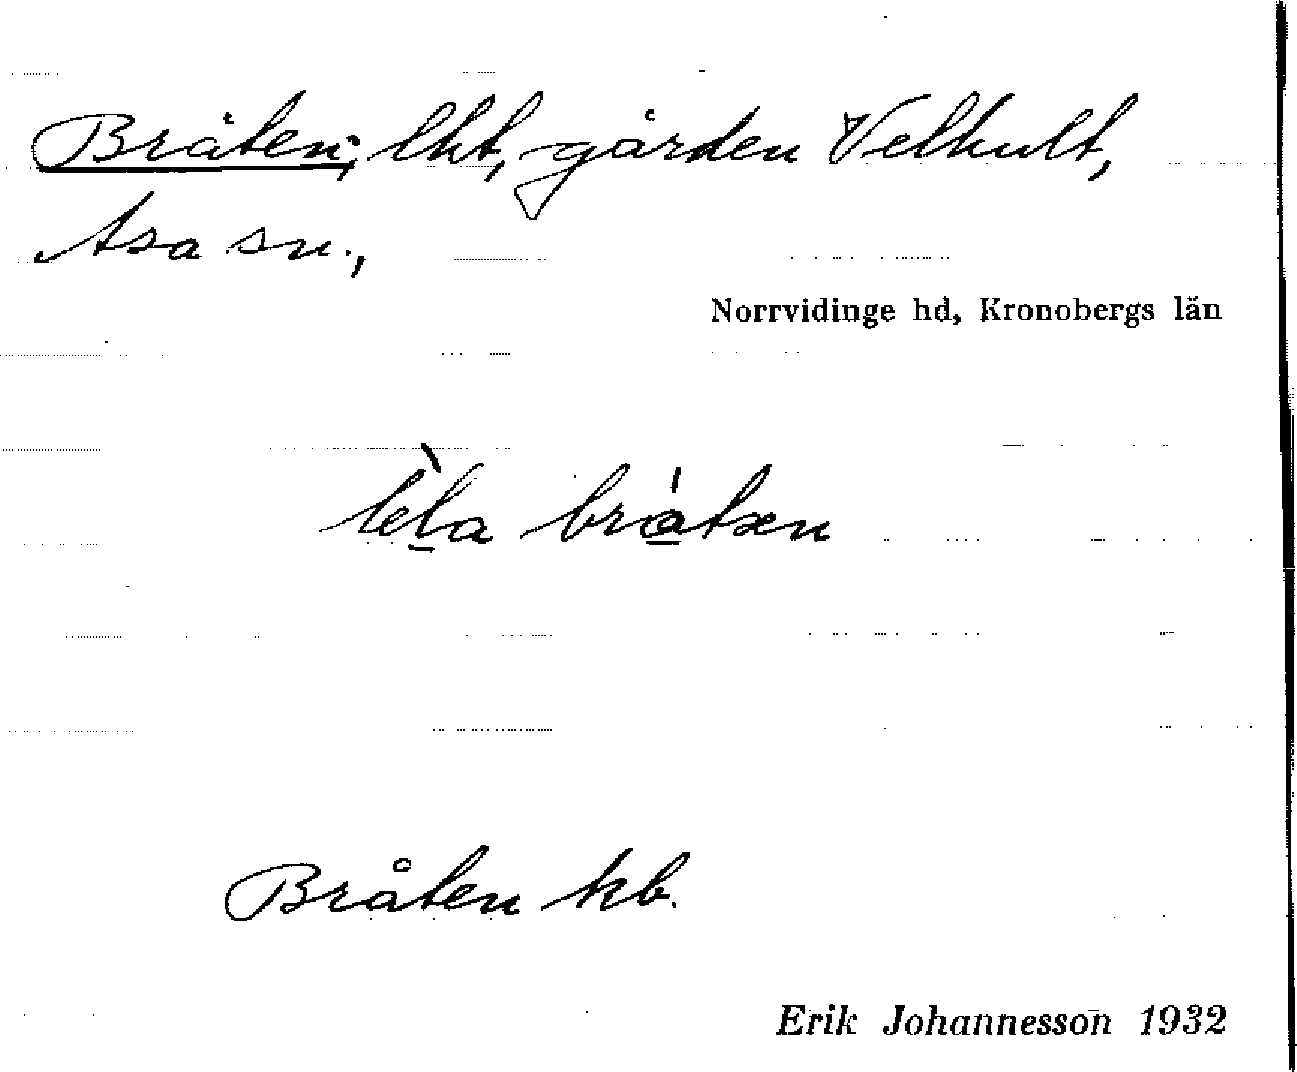 Bråten, lht, gården Velhult,
Asa sn.,
Norrvidinge hd, Kronobergs län
lela bråtæn
Bråten kb.
Erik Johannesson 1932